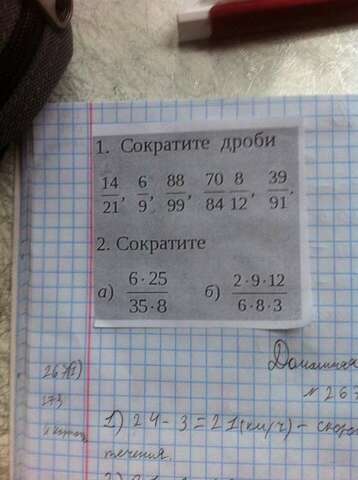 1. Сократите дроби
14/21, 6/9, 88/99, 70/84 8/12, 39/91.
2. Сократите
а) 6·25/35·8 б) 2·9·12/6·8·3
Домашняя
№ 267
1) 24-3=21(км/ч) - скоро
течения.